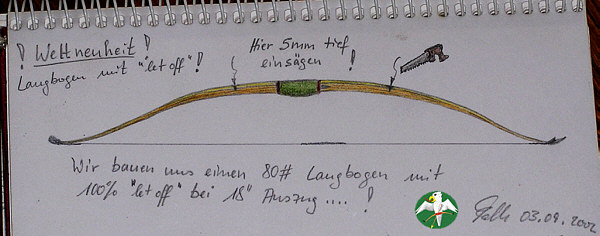 ! Weltneuheit !
Langbogen mit "let off" !
Hier 5mm tief
einsägen !
Wir bauen uns einen 80# Langbogen mit
100% "let off" bei 18" Auszug.... !
03.09.2002